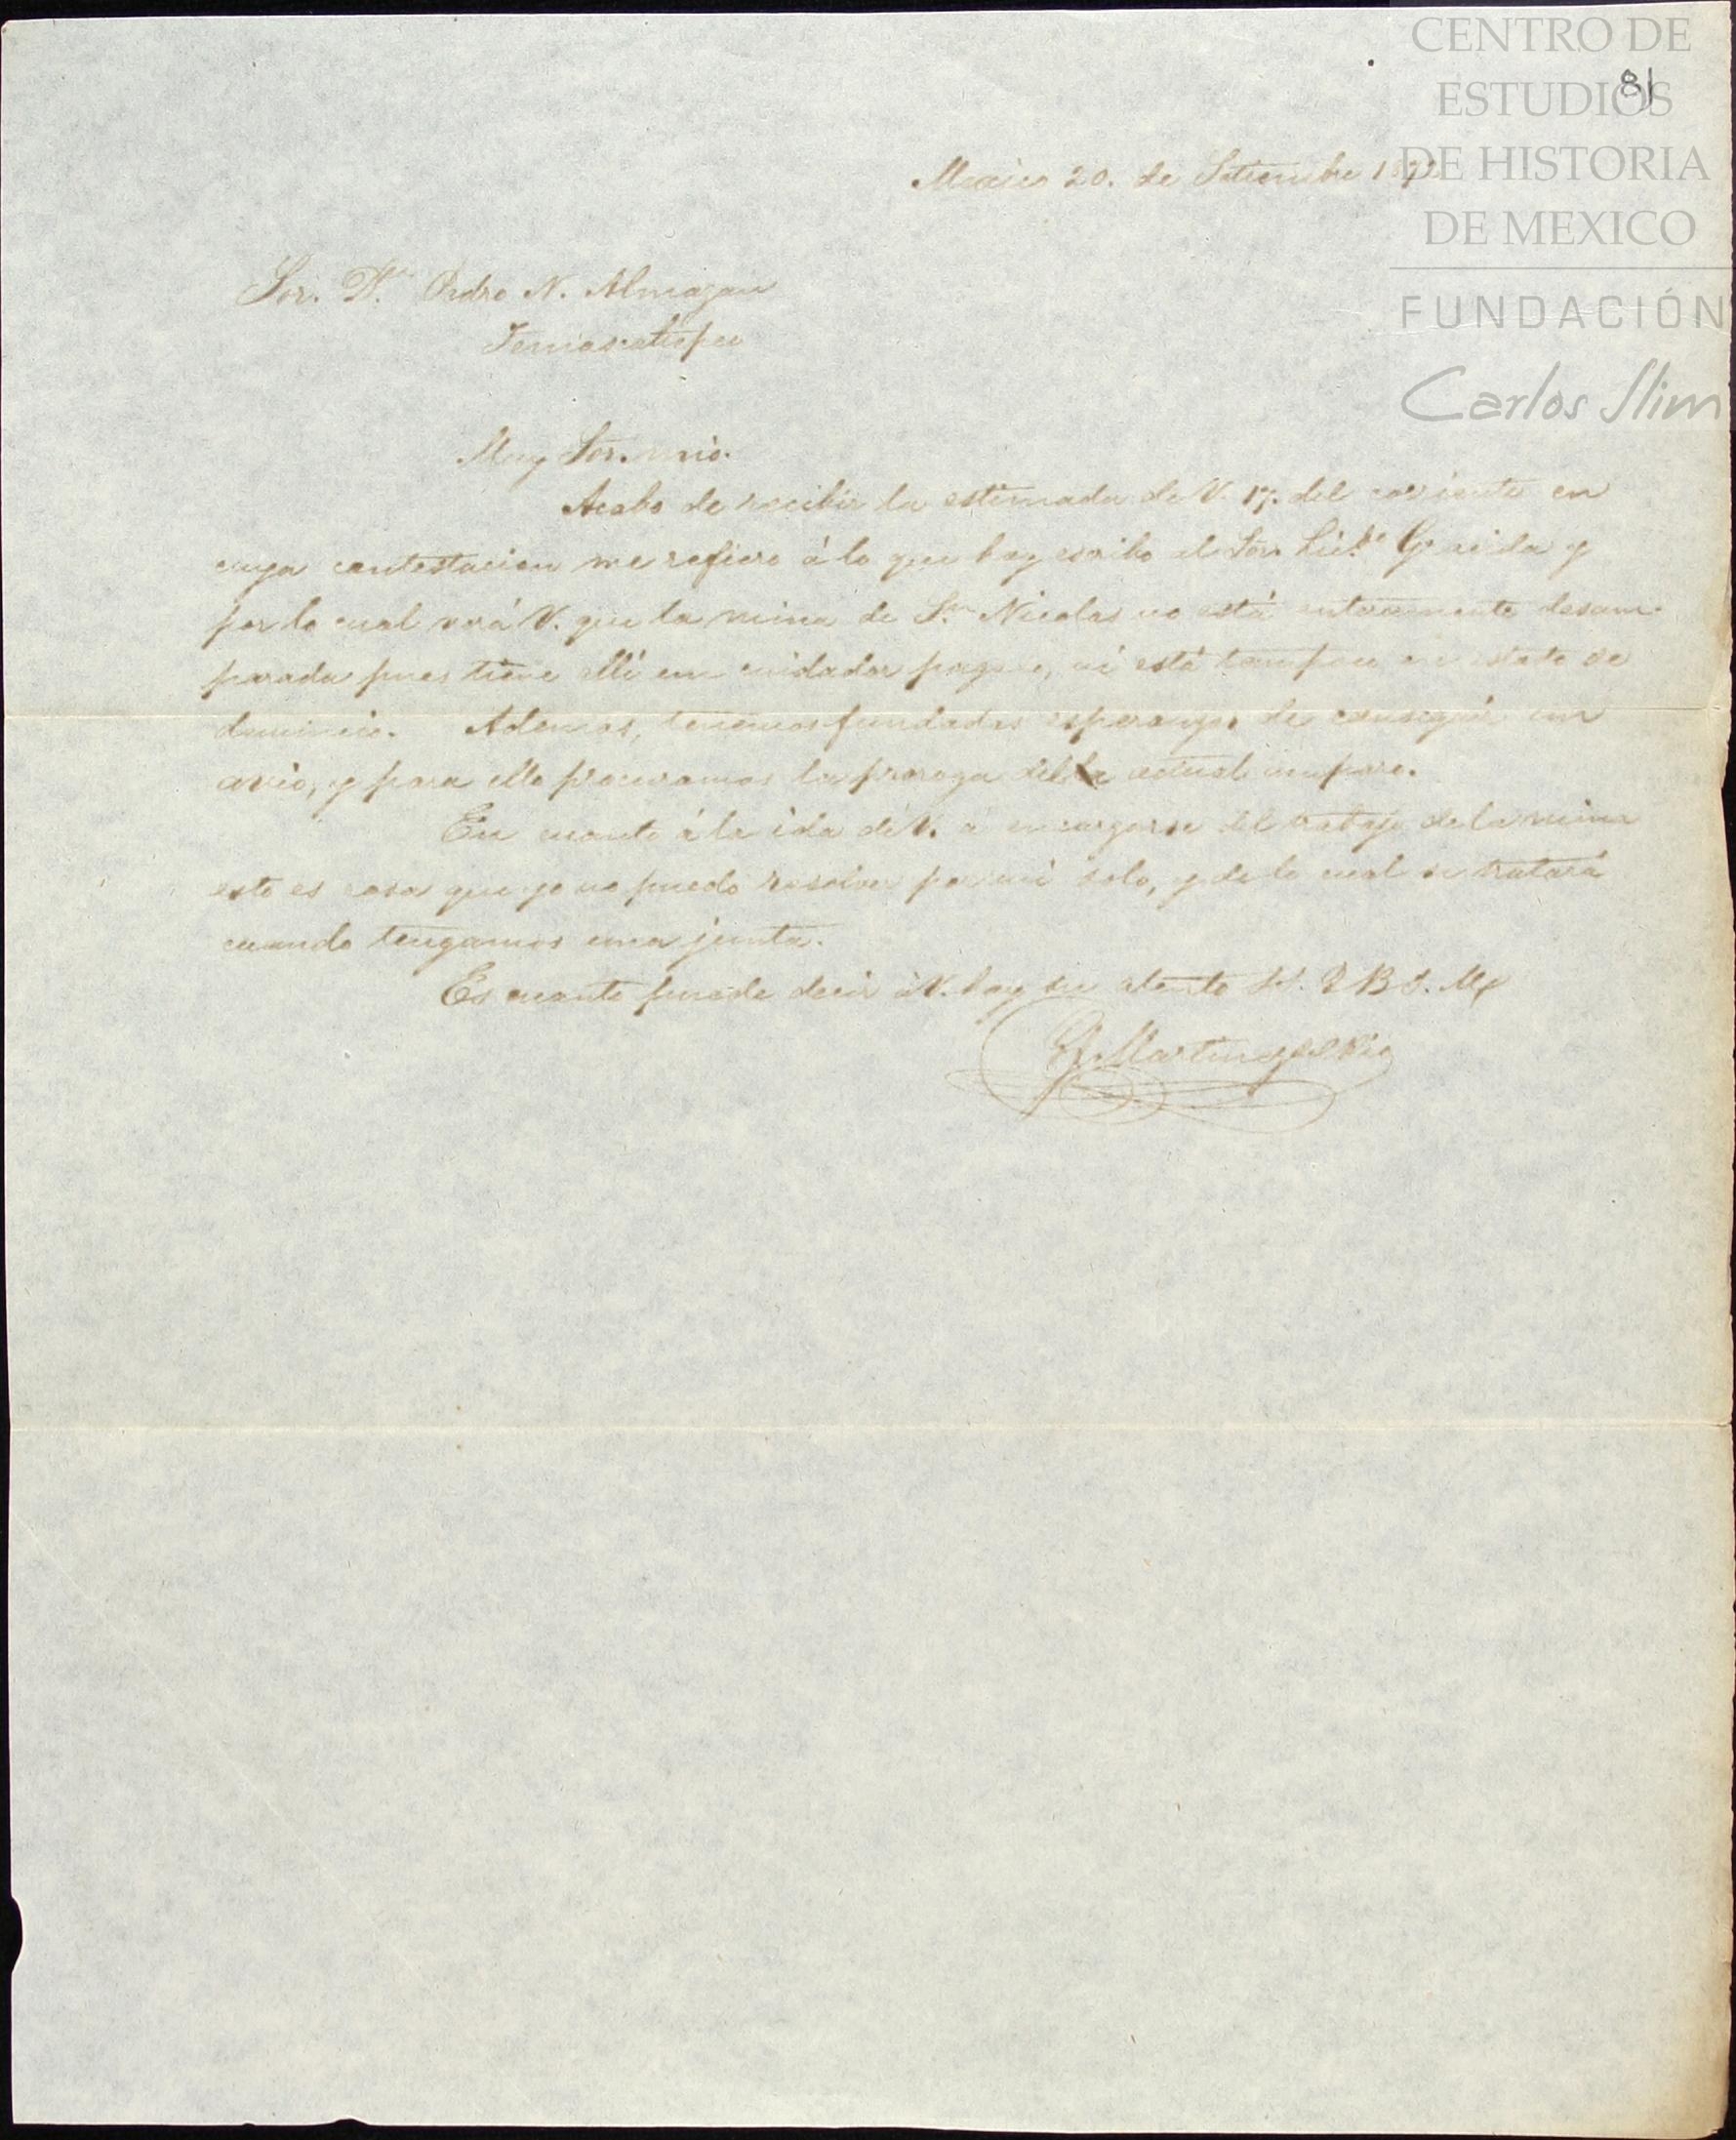 CENTRO DE
ESTUDIOS
DE HISTORIA
DE MEXICO
FUNDACIÓN
Carlos Slim
81
Mexico 20. de Setiembre
Sor. Dn. Pedro N. Almazan
Temascaltepec
Muy Sor. mio.
Acabo de recibir la estimada de V. 17. del corriente en
cuya contestacion me refiero á lo que hoy escribo al Sor. Licdo.
por lo cual verá V. que la mina de Sn. Nicolas no está enteramente desam-
parada pues tiene allí un cuidador pagado, ni está tampoco en estado de
denuncio. Ademas, tenemos fundadas esperanzas de conseguir un
avio, y para ello procuramos la proroga del actual amparo.
En cuanto á la ida de V. a encargarse del trabajo de la mina
esto es cosa que yo no puedo resolver por mi solo, y de lo cual se tratará
cuando tengamos una junta.
Es cuanto puede decir á V. hoy su atento S. Q B S. M
Martinez del Rio